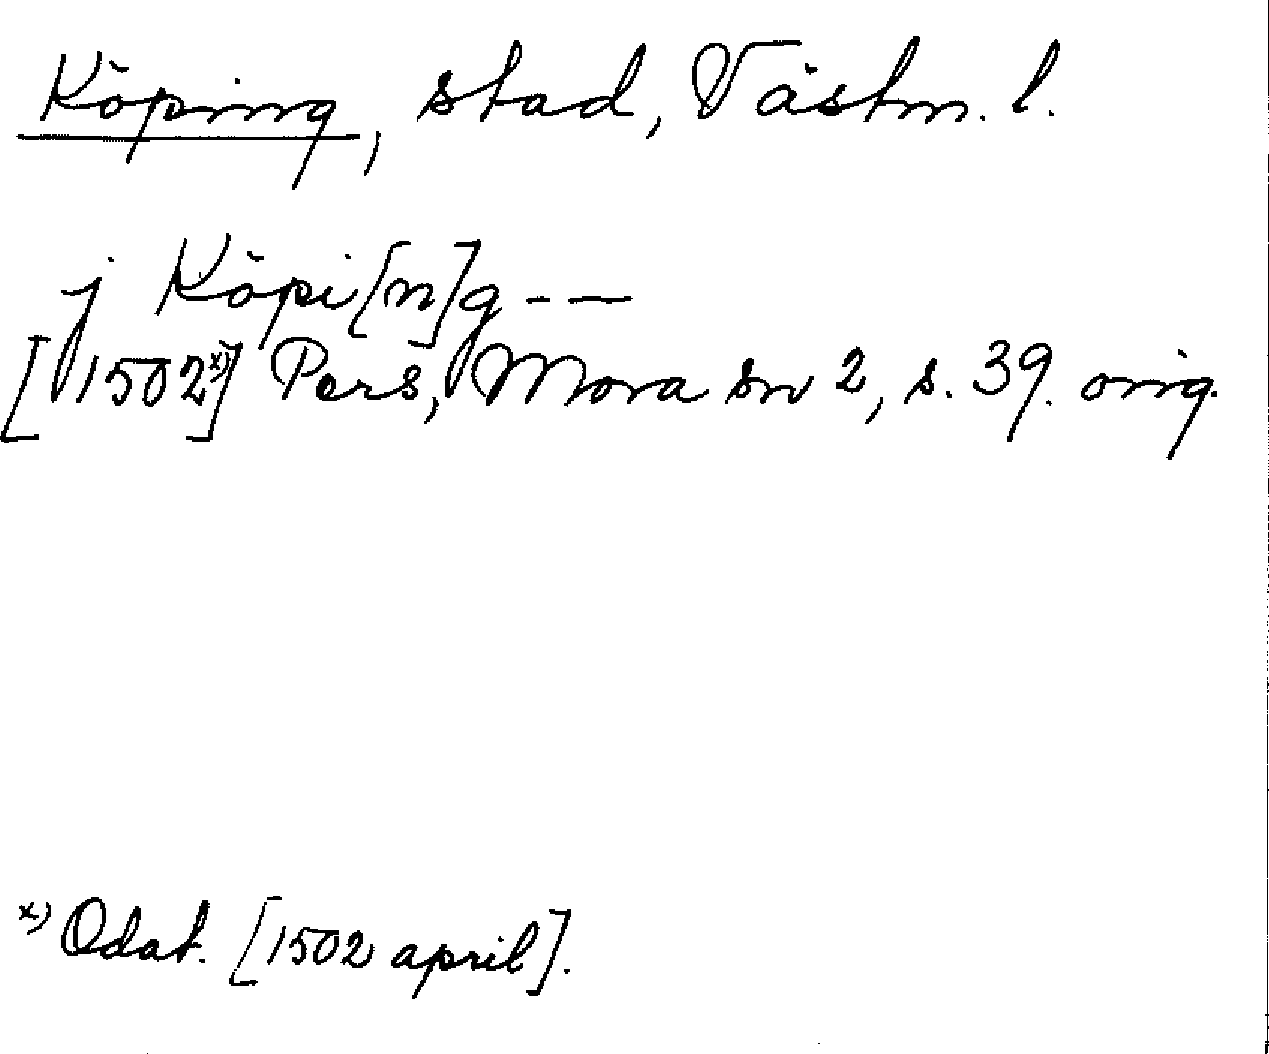 Köping, stad, Västm. l.
j Köpi[n]g - —
[1502x)] Pers, Mora sn 2, s. 39. orig.
x) Odat. [1502 april].